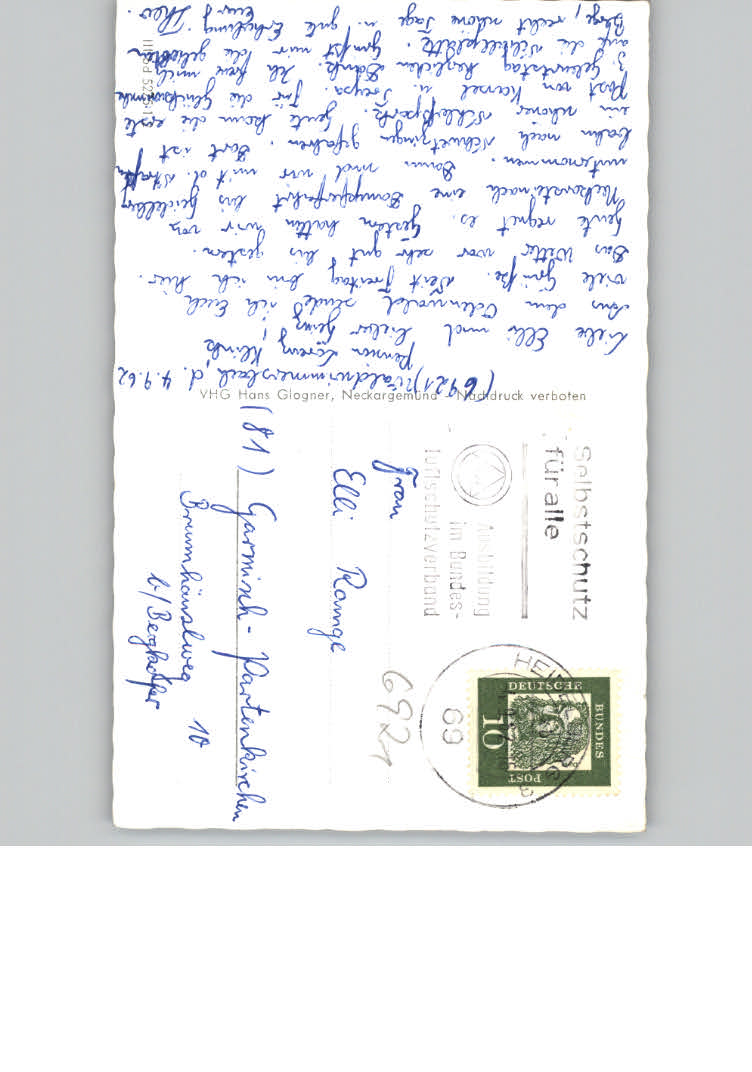 (6921) Waldwimmersbach, d. 4.9.62
Pension Lorenz Klink
Liebe Elli und lieber Heinz,
Aus dem Odenwald sende ich Euch
viele Grüße. Seit Freitag bin ich hier.
Das Wetter war sehr gut bis gestern.
Heute regnet es. Gestern hatten wir von
Neckarsteinach eine Dampferfahrt bis Heidelberg
unternommen. Dann sind wir mit d. Straßen
bahn nach Schwetzingen gefahren. Dort ist
ein schöner Schloßpark. Heute kam die erste
Post von Kassel u. Treysa. Für die Glückwünsche
z. Geburtstag herzlichen Dank. Ich freue mich
auf die Schallplatte. Grüßt mir die geliebten
Berge, recht schöne Tage u. gute Erholung.
Euer Theo.
VHG Hans Glogner, Neckargemünd - Nachdruck verboten
Selbstschutz
für alle
Ausbildung
im Bundes-
luftschutzverband
HEIDELBERG
69
DEUTSCHE
BUNDES
POST
10
Frau
Elli Runge
(81) Garmisch-Partenkirchen
Brunnhäuslweg 10
b/ Berghofer
6921